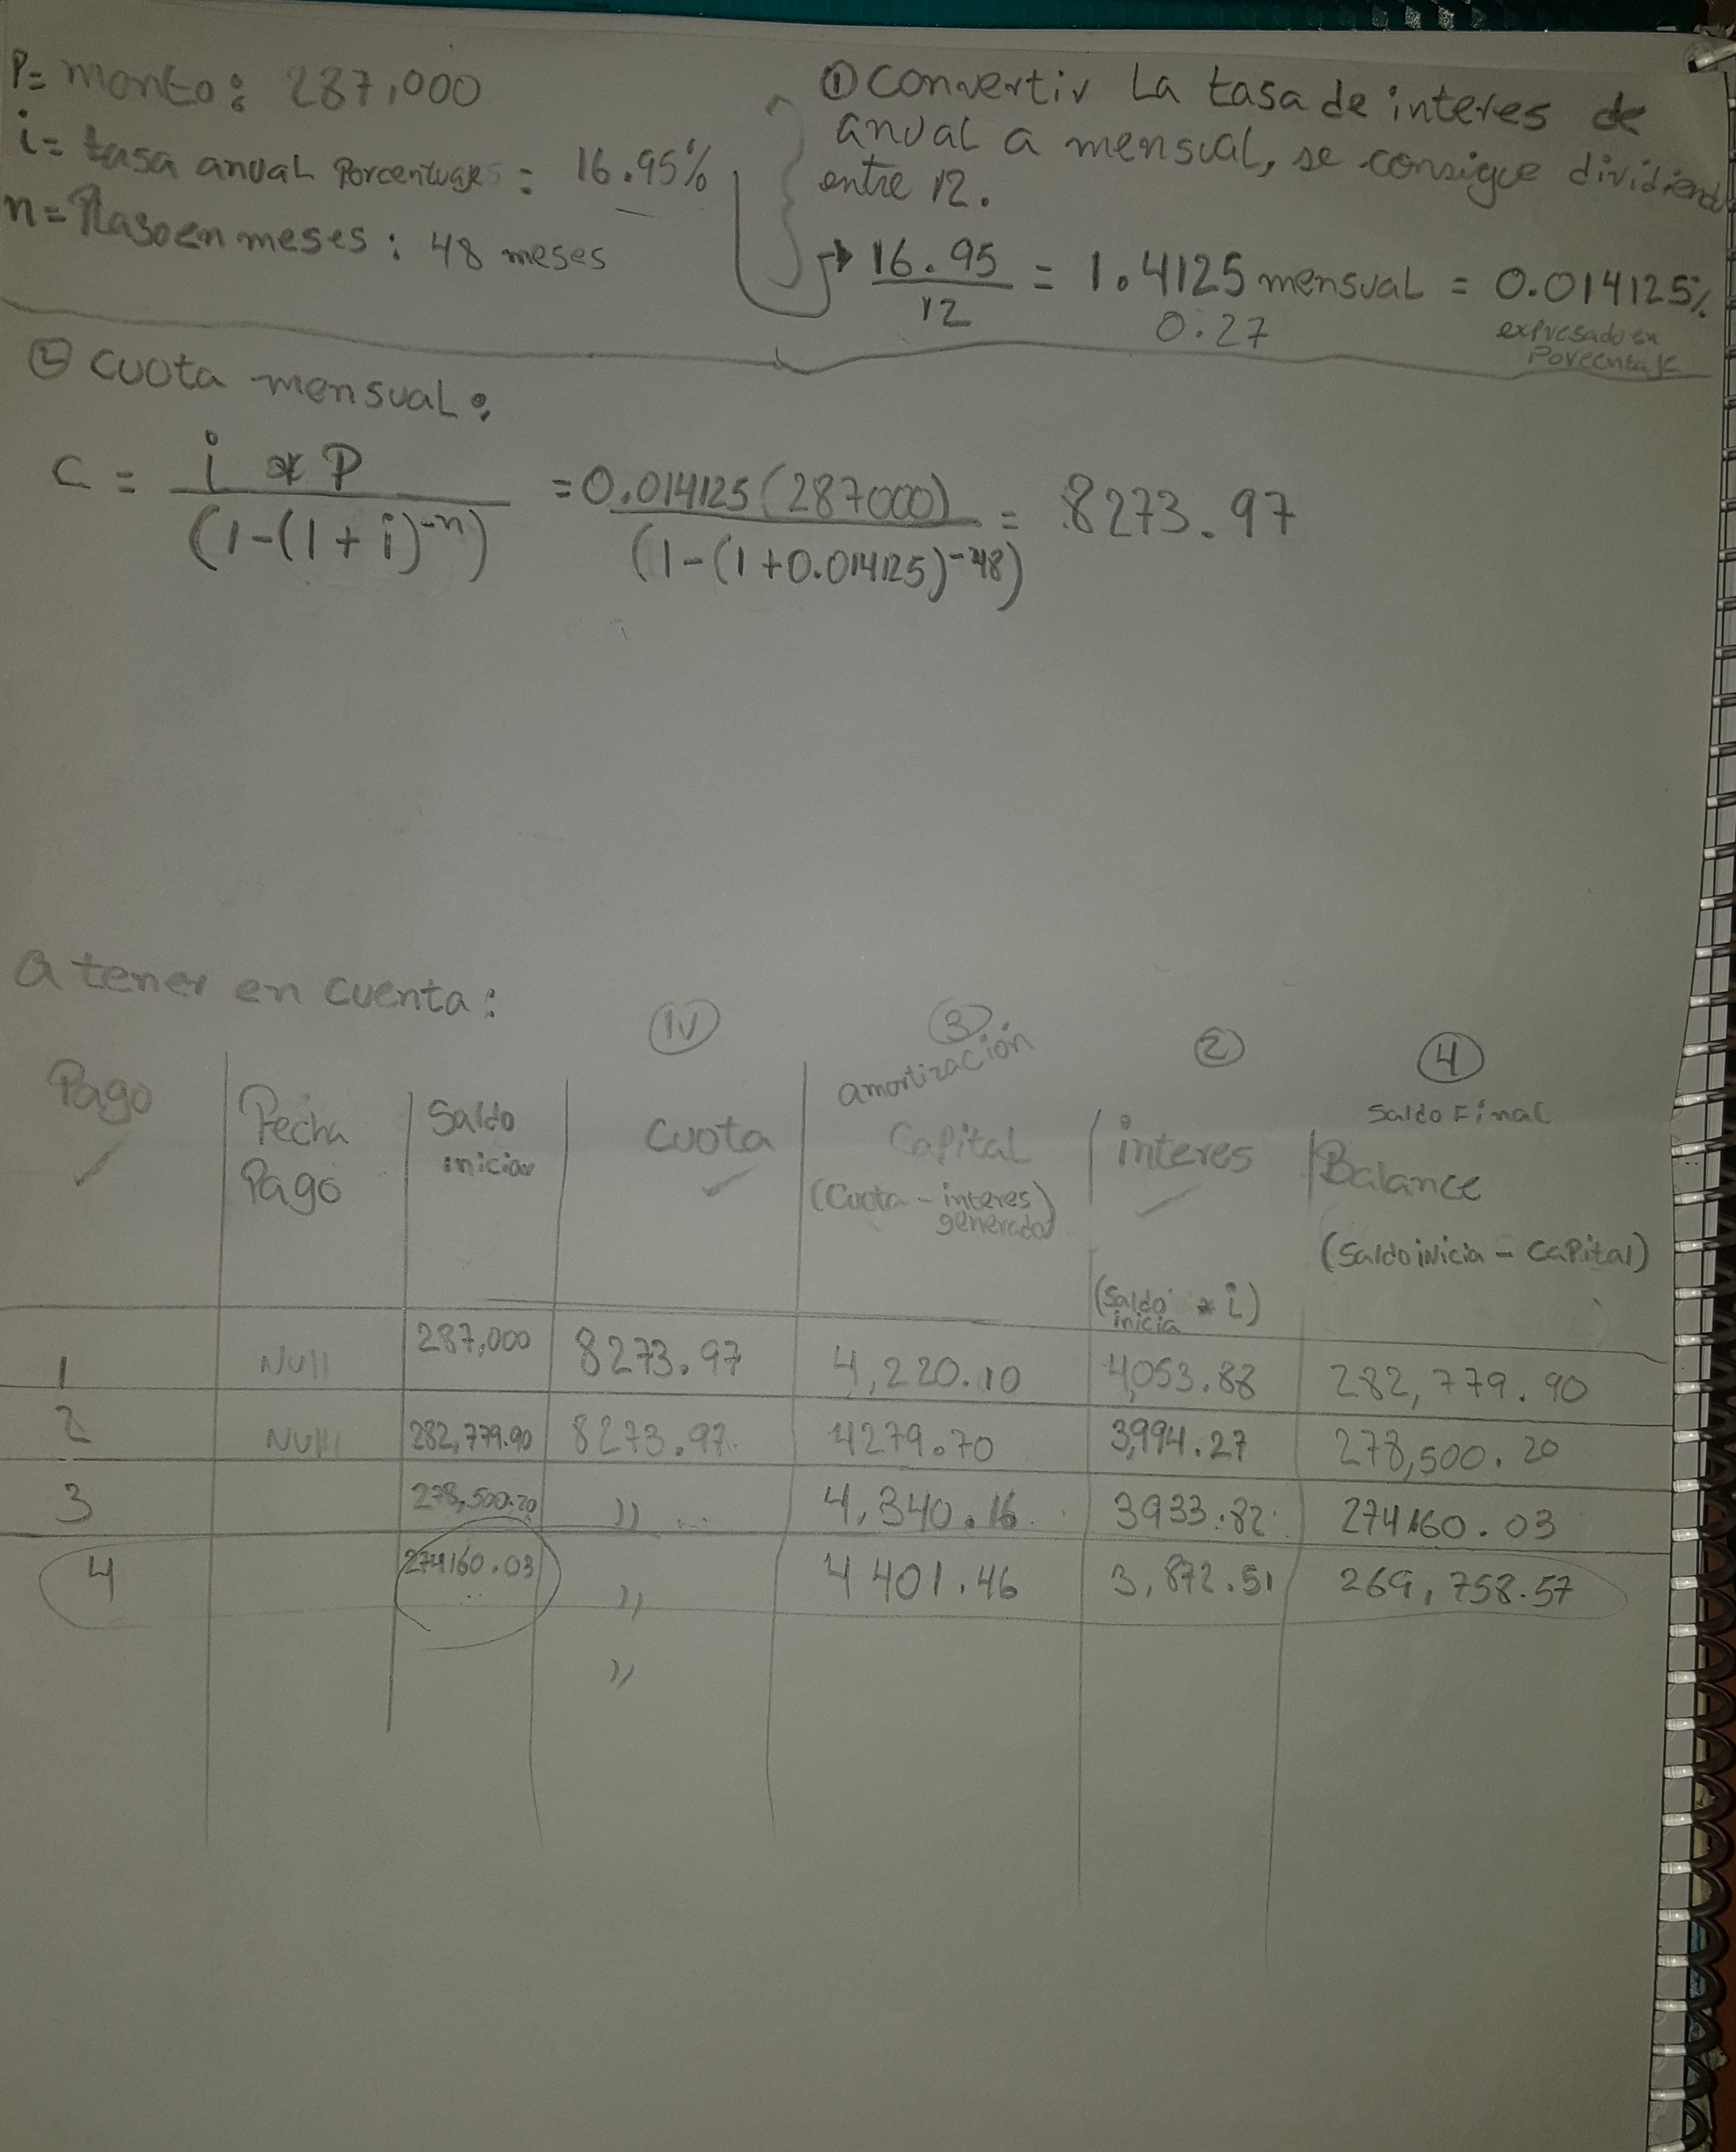 P= monto: 287,000
i= tasa anual Porcentuajes: 16.95%
n= Plaso en meses: 48 meses
① convertir La tasa de interes de
anual a mensual, se consigue dividiend
entre 12.
16.95 / 12 = 1.4125 mensual = 0.014125%
0.27
expresado en
Porcentaje
② cuota mensual:
C = i * P / (1-(1+i)^-n) = 0.014125(287000) / (1-(1+0.014125)^-48) = 8273.97
a tener en cuenta:
1✓ ③ ② ④
Pago ✓ Fecha Pago Saldo inicia Cuota ✓ amortización Capital (Cuota - interes generado) interes ✓ (Saldo inicia * i) Saldo Final Balance (Saldo inicia - Capital)
1 Null 287,000 8273.97 4,220.10 4,053.88 282,779.90
2 Null 282,779.90 8273.97 4279.70 3,994.27 278,500.20
3 278,500.20 )) 4,340.16 3933.82 274160.03
4 274160.03 )) 4401.46 3,872.51 269,758.57
))